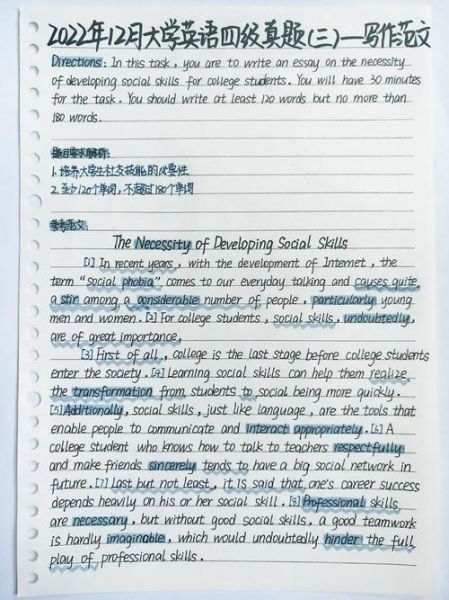 2022年12月大学英语四级真题(三)—写作范文
Directions: In this task, you are to write an essay on the necessity
of developing social skills for college students. You will have 30 minutes
for the task. You should write at least 120 words but no more than
180 words.
题目要求解析:
1. 培养大学生社交技能的必要性
2. 至少120个单词,不超过180个单词
参考范文:
The Necessity of Developing Social Skills
[1] In recent years, with the development of Internet, the
term "social phobia" comes to our everyday talking and causes quite
a stir among a considerable number of people, particularly young
men and women. [2] For college students, social skills, undoubtedly,
are of great importance.
[3] First of all, college is the last stage before college students
enter the society. [4] Learning social skills can help them realize
the transformation from students to social being more quickly.
[5] Additionally, social skills, just like language, are the tools that
enable people to communicate and interact appropriately. [6] A
college student who knows how to talk to teachers respectfully
and make friends sincerely tends to have a big social network in
future. [7] Last but not least, it is said that one's career success
depends heavily on his or her social skill. [8] Professional skills
are necessary, but without good social skills, a good teamwork
is hardly imaginable, which would undoubtedly hinder the full
play of professional skills.